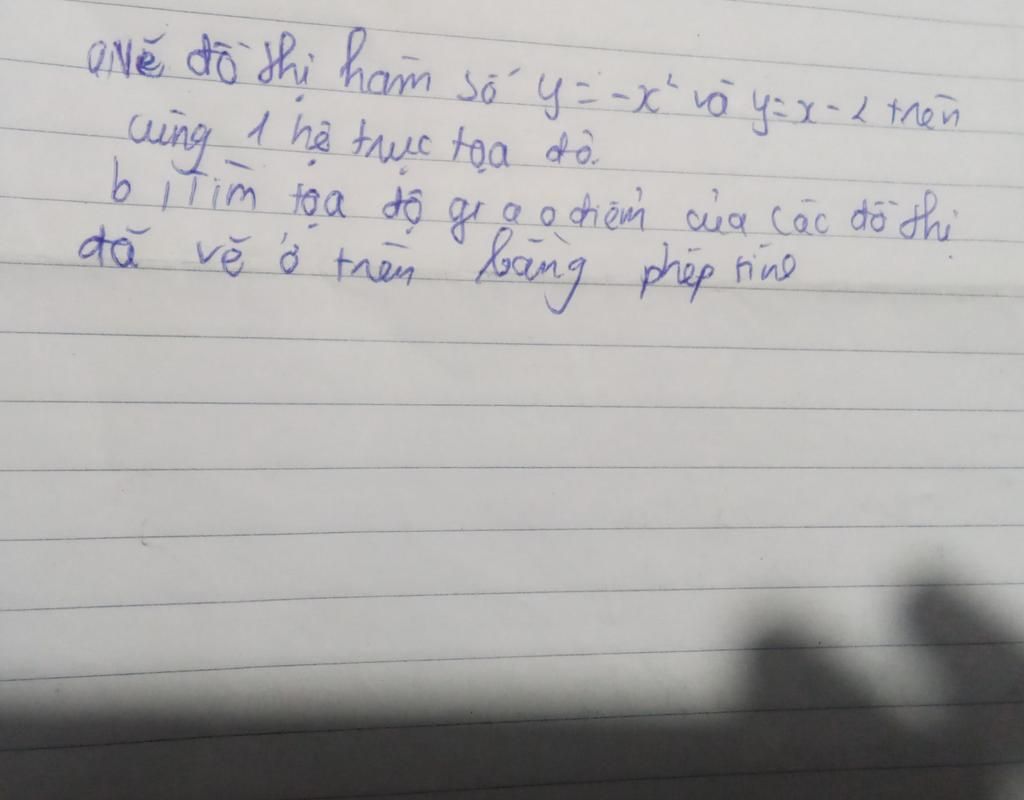 a, Vẽ đồ thị hàm số y = -x² và y = x - 2 trên
cùng 1 hệ trục tọa độ.
b, Tìm tọa độ giao điểm của các đồ thị
đã vẽ ở trên bằng phép tính